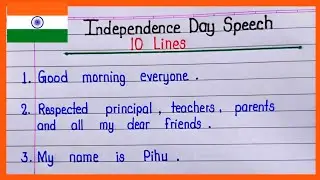 Independence Day Speech
10 Lines
1. Good morning everyone.
2. Respected principal, teachers, parents
and all my dear friends.
3. My name is Pihu.